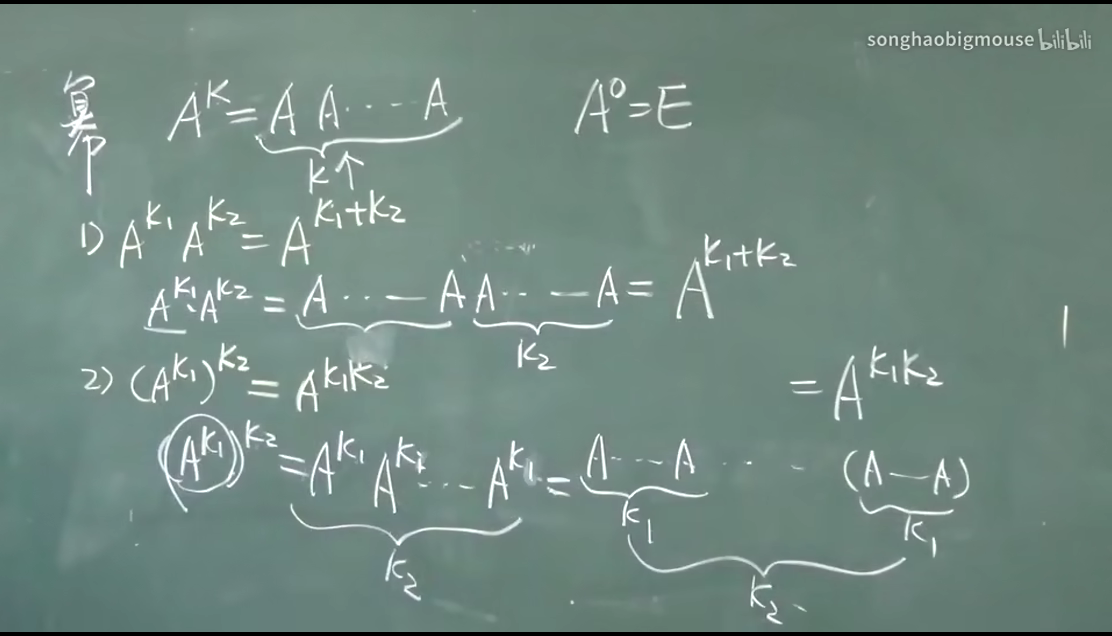 songhaobigmouse bilibili
幂 A^K = A A ⋯ A A^0 = E
K个
1) A^{K1} A^{K2} = A^{K1+K2}
A^{K1}·A^{K2} = A ⋯ A A ⋯ A = A^{K1+K2}
K2
2) (A^{K1})^{K2} = A^{K1K2} = A^{K1K2}
(A^{K1})^{K2} = A^{K1} A^{K1} ⋯ A^{K1} = A ⋯ A ⋯ (A — A)
K1 K1
K2 K2